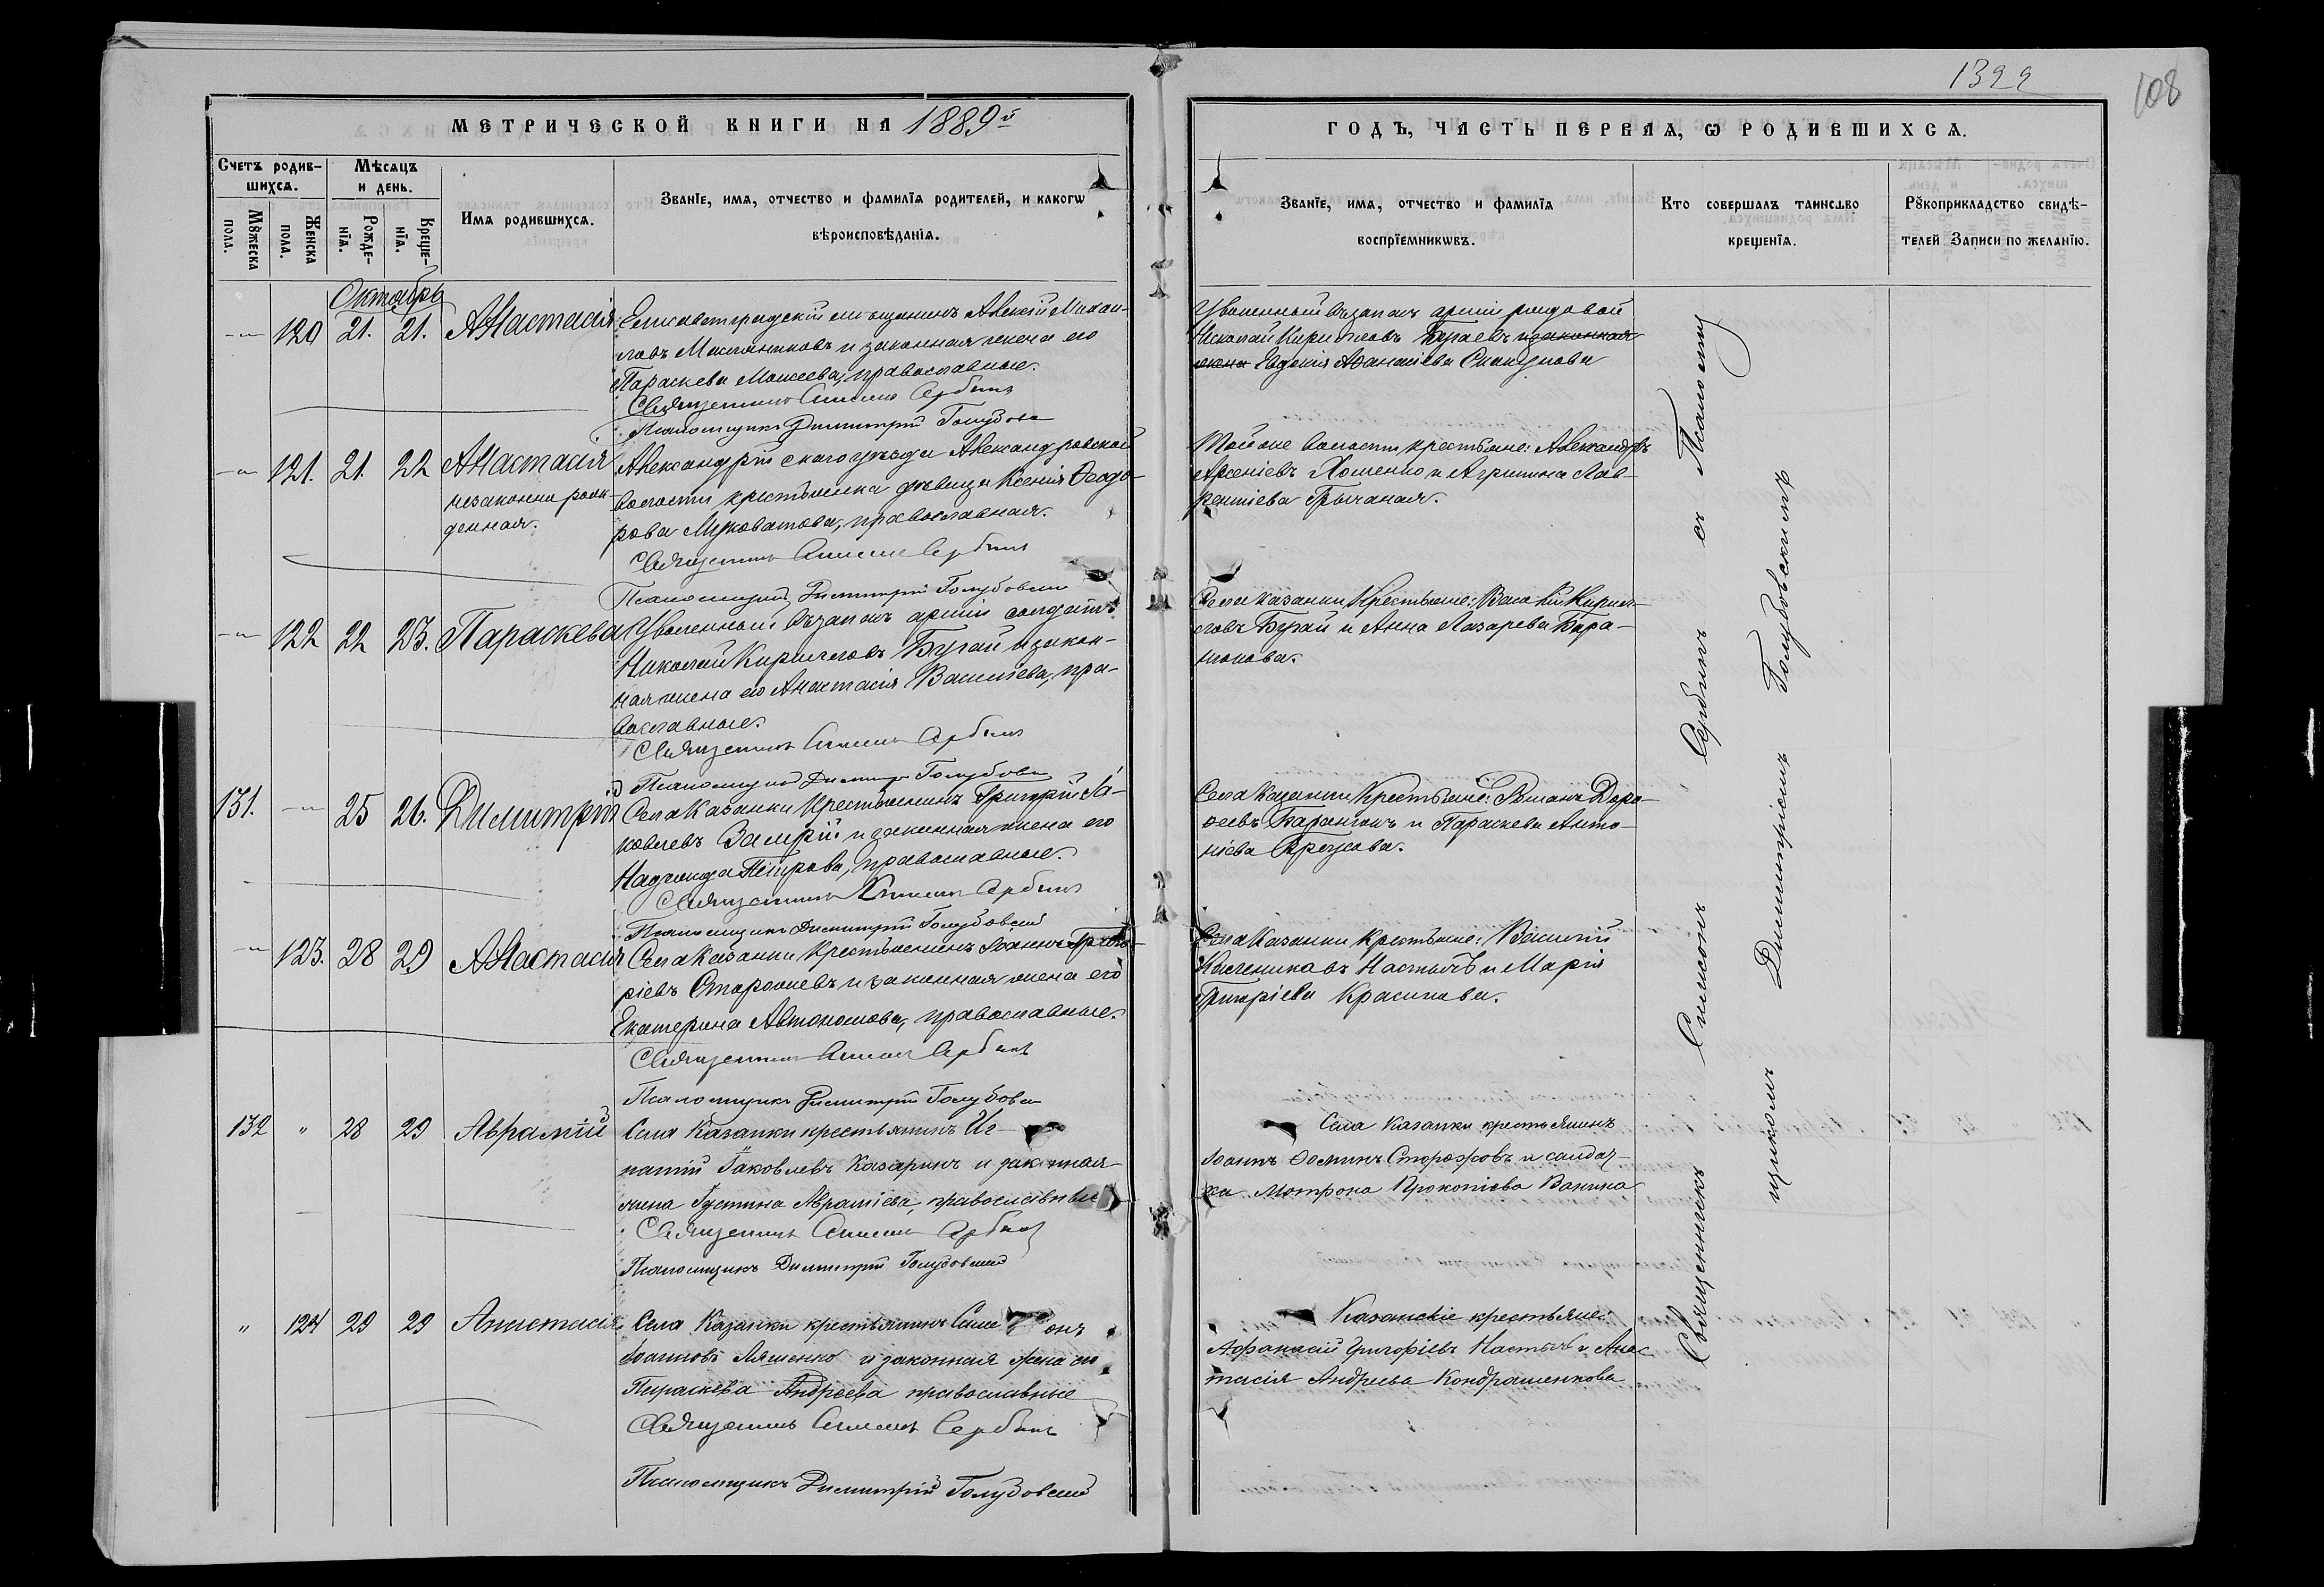 1322
108
МЕТРИЧЕСКОЙ КНИГИ НА 1889й
ГОДЪ, ЧАСТЬ ПЕРВАЯ, Ѡ РОДИВШИХСѦ.
Счетъ родив-
шихсѧ.
Мѣсѧцъ
и день.
Мꙋжеска
пола.
Женска
пола.
Рожде-
нїѧ.
Креще-
нїѧ.
Имѧ родившихсѧ.
Званїе, имѧ, отчество и фамилїѧ родителей, и какогѡ
вѣроисповѣданїѧ.
Званїе, имѧ, отчество и фамилїѧ
воспрїемникѡвъ.
Кто совершалъ таинство
крещенїѧ.
Рꙋкоприкладство свидѣ-
телей Записи по желанїю.
Октябрь
120 21. 21. Анастасія
Елисаветградскій мѣщанинъ Алексій Михаи-
ловъ Масляниковъ и законная жена его
Параскева Моисеева, православные.
Священникъ Симеонъ Сербинъ
Псаломщикъ Димитрій Голубовскій
Уволенный въ запасъ арміи рядовой
Николай Кириловъ Бугаевъ и законная
жена Евдокія Аѳанасіева
121. 21. 22 Анастасія
незаконно рож-
денная.
Александрійскаго уѣзда Александровской
волости крестьянка дѣвица Ксенія Ѳеодо-
рова Муковатова, православная.
Священникъ Симеонъ Сербинъ
Псаломщикъ Димитрій Голубовскій
Той же волости крестьяне: Александръ
Арсеніевъ Хоменко и Агрипина Лав-
рентіева Грычаная.
122 22 23. Параскева
Уволенный въ запасъ арміи солдатъ
Николай Кирилловъ Бугай и закон-
ная жена его Анастасія Василіева, пра-
вославные.
Священникъ Симеонъ Сербинъ
Псаломщикъ Димитрій Голубовскій
Села Казанки Крестьяне: Василій Кирил-
ловъ Бугай и Анна Лазарева Бара-
131. 25 26. Димитрій
Села Казанки Крестьянинъ Григорій Іа-
ковлевъ Замрій и законная жена его
Надежда Петрова, православные.
Священникъ Симеонъ Сербинъ
Псаломщикъ Димитрій Голубовскій
Села Казанки Крестьяне: Романъ Доро-
ѳеевъ и Параскева Анто-
ніева
123. 28 29 Анастасія
Села Казанки Крестьянинъ Іоаннъ Григо-
ріевъ Сторожевъ и законная жена его
Екатерина Автономова, православные.
Священникъ Симеонъ Сербинъ
Псаломщикъ Димитрій Голубовскій
Села Казанки Крестьяне: Василій
Калениковъ Настычъ и Марія
Григоріева Красикова.
132 " 28 29 Аврамій
Села Казанки крестьянинъ Иг-
натій Іаковлевъ Казаринъ и законная
жена Іустина Аврамієва, православные
Священникъ Симеонъ Сербинъ
Псаломщикъ Димитрій Голубовскій
Села Казанки крестьянинъ
Іоаннъ Ѳоминъ Сторожовъ и солдат-
ка Мотрона Прокопіева Ванина
" 124 29 29 Анастасія
Села Казанки крестьянинъ Симе онъ
Іоанновъ Ляшенко и законная жена его
Параскева Андреева православные
Священникъ Симеонъ Сербинъ
Псаломщикъ Димитрій Голубовскій
Казанскіе крестьяне:
Афанасій Григоріевъ Настычъ и Анас
тасія Андреева Кондрашенкова
Священникъ Симеонъ Сербинъ съ Псаломщ
щикомъ Димитріемъ Голубовскимъ